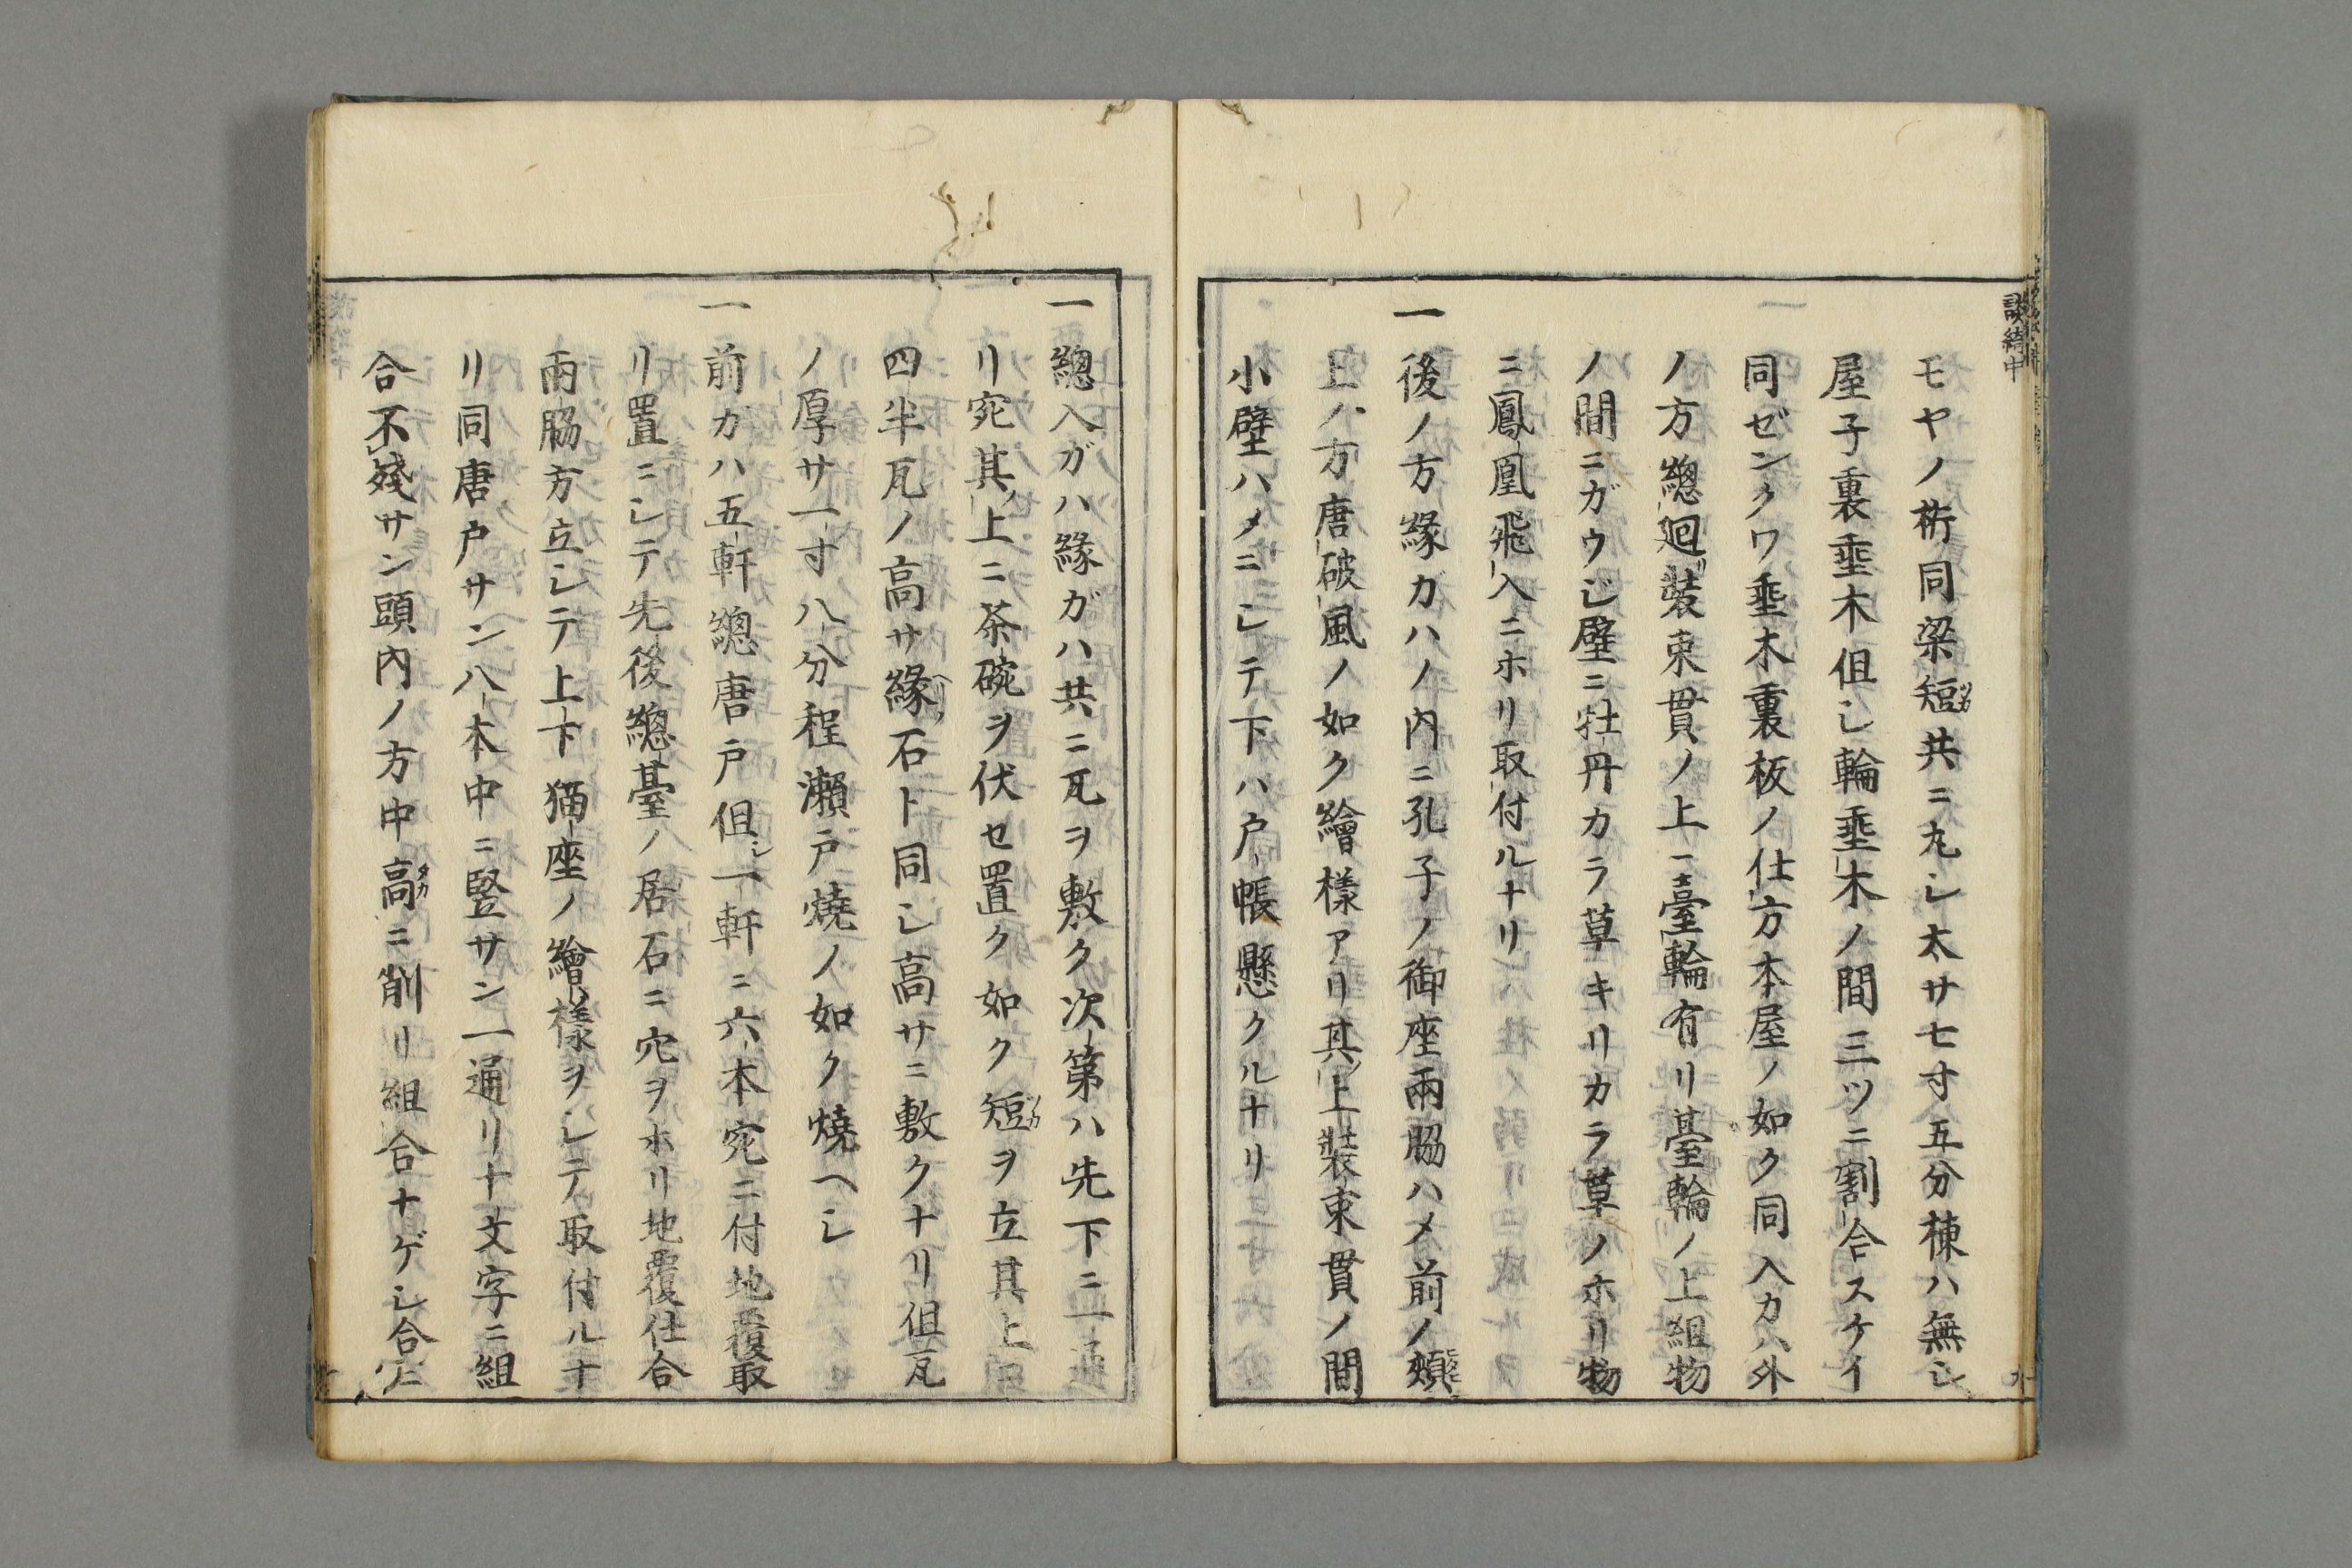 談綺中
モヤノ桁同梁短共ニ丸シ太サ七寸五分棟ハ無シ
屋子裏垂木但シ輪垂木ノ間三ツニ割合スケイ
同ゼンクワ垂木裏板ノ仕方本屋ノ如ク同入カハ外
ノ方總廻リ装束貫ノ上ニ臺輪有リ臺輪ノ上組物
ノ間ニガウシ壁ニ牡丹カラ草キリカラ草ノホリ物
ニ鳳凰飛入ニホリ取付ルナリ
一後ノ方縁ガハノ内ニ孔子ノ御座両脇ハメ前ノ
上ノ方唐破風ノ如ク繪樣アリ其ノ上装束貫ノ間
小壁ハメニシテ下ハ戸帳懸クルナリ
一總入ガハ縁ガハ共ニ瓦ヲ敷ク次第ハ先下ニ一通
リ宛其ノ上ニ茶碗ヲ伏セ置ク如ク短ヲ立其上
四半瓦ノ高サ縁石ト同シ高サニ敷クナリ但瓦
ノ厚サ一寸八分程瀬戸燒ノ如ク燒ヘシ
一前ガハ五軒總唐戸但シ一軒ニ六本宛ニ付地覆取
リ置ニシテ先後總臺ノ居石ニ穴ヲホリ地覆仕合
両脇方立シテ上下猫座ノ繪樣ヲシテ取付ルナ
リ同唐戸サン八本中ニ竪サン一通リ十文字ニ組
合不殘サン頭内ノ方中高ニ削リ組合ナゲシ合